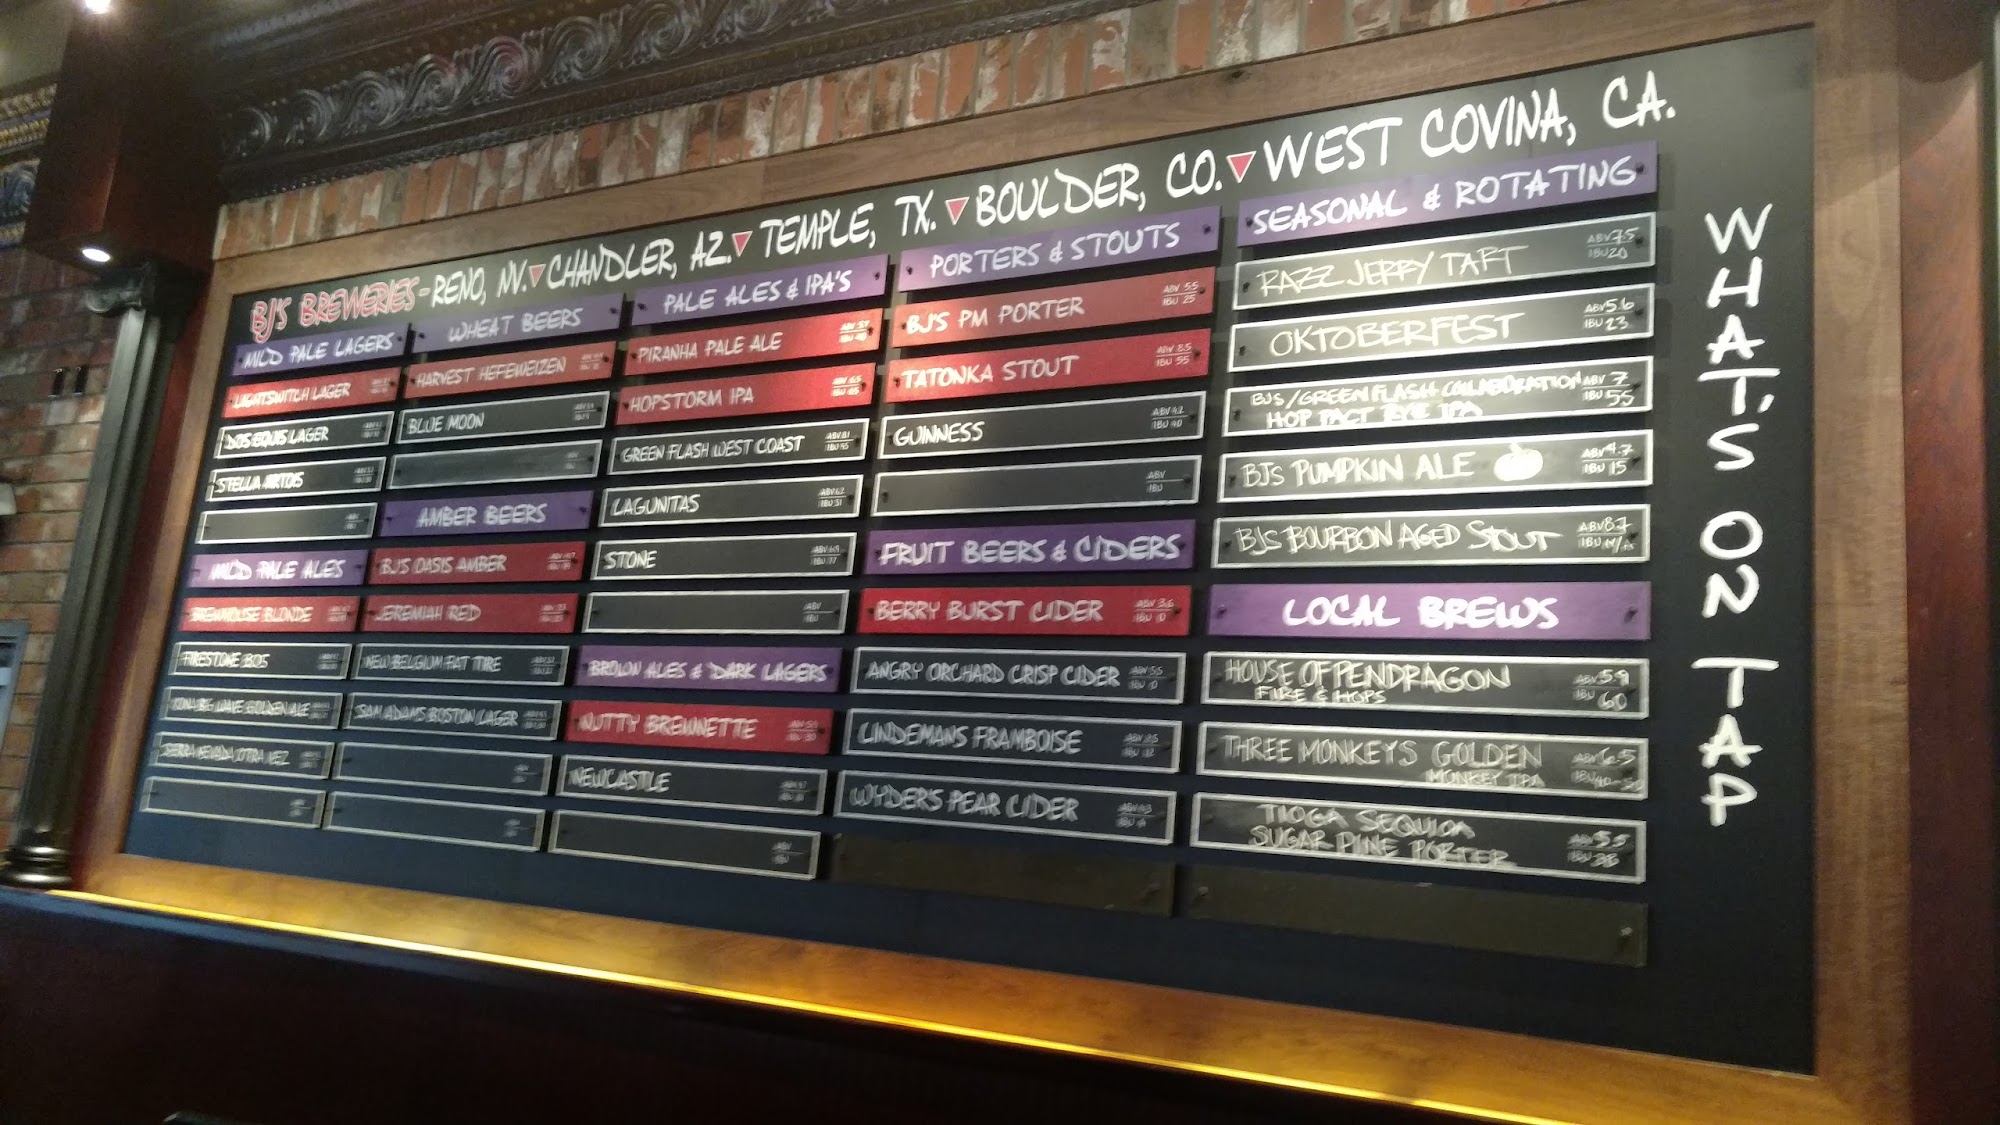 BJ'S BREWERIES - RENO, NV. CHANDLER, AZ. TEMPLE, TX. BOULDER, CO. WEST COVINA, CA.
WHAT'S ON TAP
MILD PALE LAGERS
LIGHTSWITCH LAGER
DOS EQUIS LAGER
STELLA ARTOIS
MILD PALE ALES
BREWHOUSE BLONDE
FIRESTONE 805
KONA BIG WAVE GOLDEN ALE
SIERRA NEVADA OTRA VEZ
WHEAT BEERS
HARVEST HEFEWEIZEN
BLUE MOON
AMBER BEERS
BJ'S OASIS AMBER
JEREMIAH RED
NEW BELGIUM FAT TIRE
SAM ADAMS BOSTON LAGER
PALE ALES & IPA'S
PIRANHA PALE ALE
HOPSTORM IPA
GREEN FLASH WEST COAST
LAGUNITAS
STONE
ABV
IBU
BROWN ALES & DARK LAGERS
NUTTY BREWNETTE
NEWCASTLE
ABV
IBU
PORTERS & STOUTS
BJ'S PM PORTER ABV 5.5
IBU 25
TATONKA STOUT ABV 8.5
IBU 55
GUINNESS ABV 4.2
IBU 40
ABV
IBU
FRUIT BEERS & CIDERS
BERRY BURST CIDER
ANGRY ORCHARD CRISP CIDER
LINDEMANS FRAMBOISE
WYDER'S PEAR CIDER
SEASONAL & ROTATING
RAZZ JERRY TART ABV 7.5
IBU 20
OKTOBERFEST ABV 5.6
IBU 23
BJ'S/GREEN FLASH COLLABORATION ABV 7
HOP PACT RYE IPA 55
BJS PUMPKIN ALE ABV 4.7
IBU 15
BJS BOURBON AGED STOUT ABV 8.7
IBU N/A
LOCAL BREWS
HOUSE OF PENDRAGON ABV 5.9
FIRE & HOPS IBU 60
THREE MONKEYS GOLDEN ABV 6.5
MONKEY IPA
TIOGA SEQUOIA ABV 5.5
SUGAR PINE PORTER IBU 38